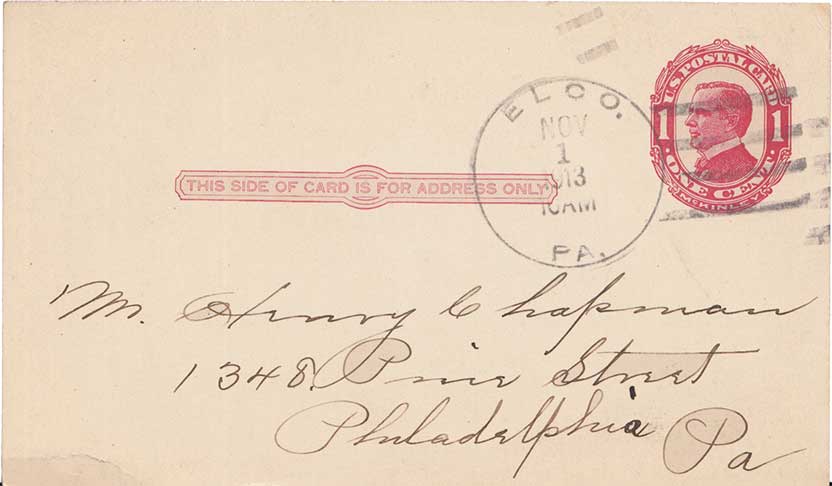 U.S. POSTAL CARD
1 1
ONE CENT.
McKINLEY
ELCO.
NOV
1
1913
10AM
PA.
THIS SIDE OF CARD IS FOR ADDRESS ONLY
Mr. Henry Chapman
1348. Pine Street
Philadelphia Pa